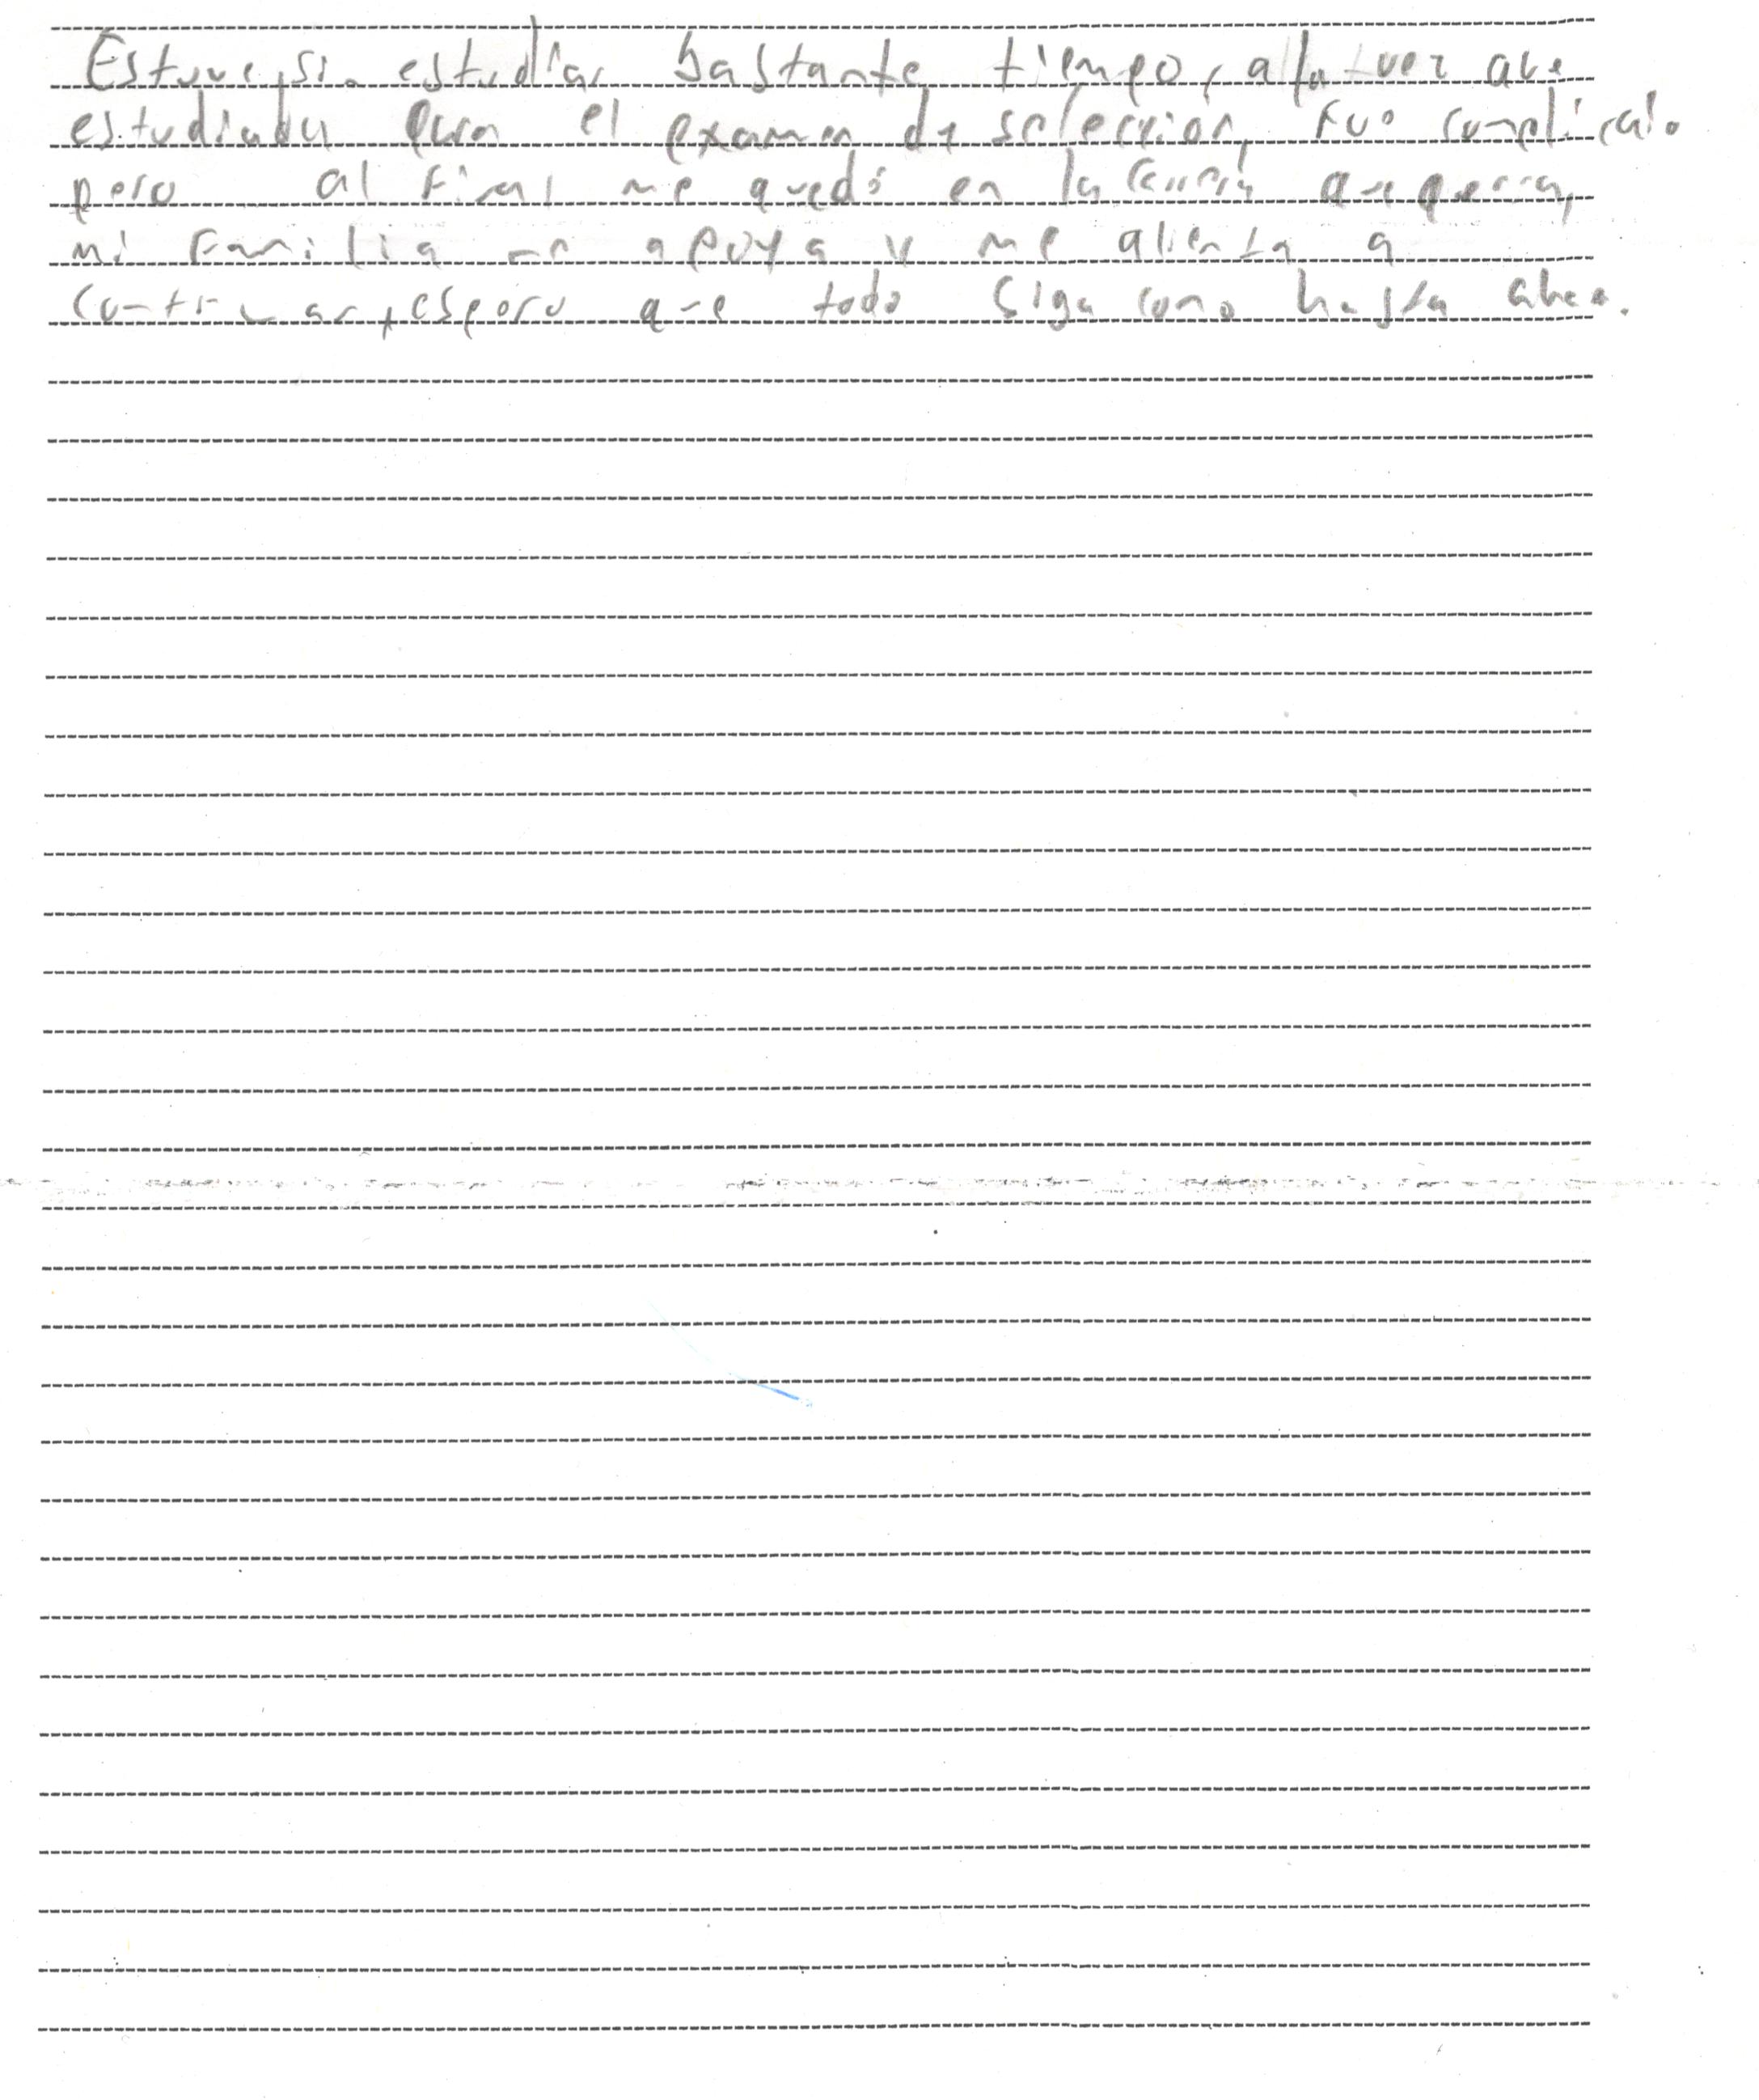 Estuve, sin estudiar bastante tiempo, a la vez que
estudiaba para el examen de selección, fue complicado
pero al final me quedó en la carrera que quería,
mi familia me apoya y me alienta a
continuar, espero que todo siga como hasta ahora.